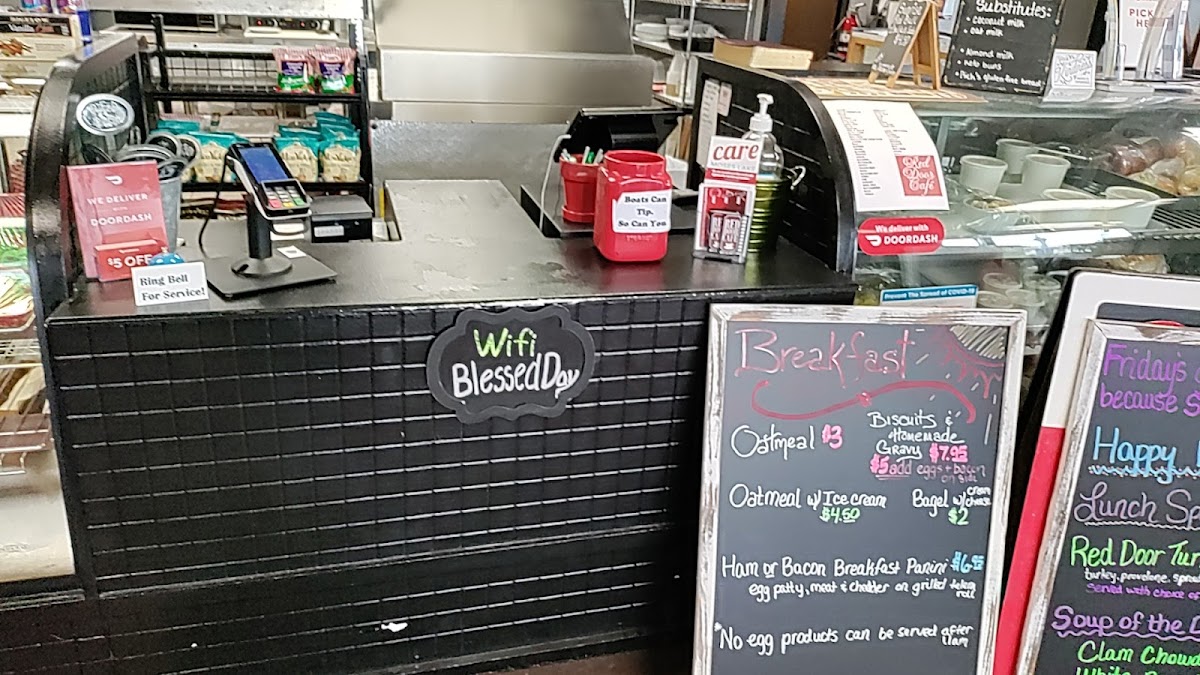 WE DELIVER
WITH
DOORDASH
$5 OFF
Ring Bell
For Service!
Wifi
BlessedDay
Boats Can
Tip.
So Can You
care
Red
Door
Café
We deliver with
DOORDASH
Prevent The Spread of COVID-19
Substitutes:
• coconut milk
• oat milk
• Almond milk
• keto buns
gluten-free bread
PICK
HE
Breakfast
Oatmeal $3
Biscuits &
Homemade
Gravy $7.95
$5 add eggs + bacon
on side
Oatmeal w/ Ice cream
$4.50
Bagel w/ cream cheese
$2
Ham or Bacon Breakfast Panini
egg patty, meat & cheddar on grilled
roll
*No egg products can be served after
11am
Friday's
because S
Happy
Lunch Sp
Red Door Tur
turkey, provolone, sprou
Served with choice of
Soup of the D
Clam Chowd